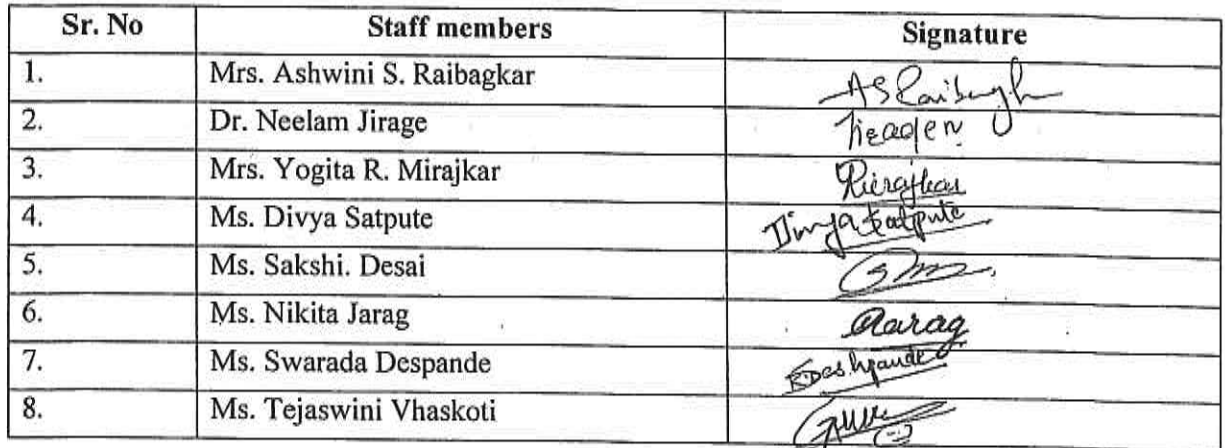 Sr. No Staff members Signature
1. Mrs. Ashwini S. Raibagkar
2. Dr. Neelam Jirage
3. Mrs. Yogita R. Mirajkar
4. Ms. Divya Satpute Divya Satpute
5. Ms. Sakshi. Desai
6. Ms. Nikita Jarag
7. Ms. Swarada Despande SDeshpande
8. Ms. Tejaswini Vhaskoti